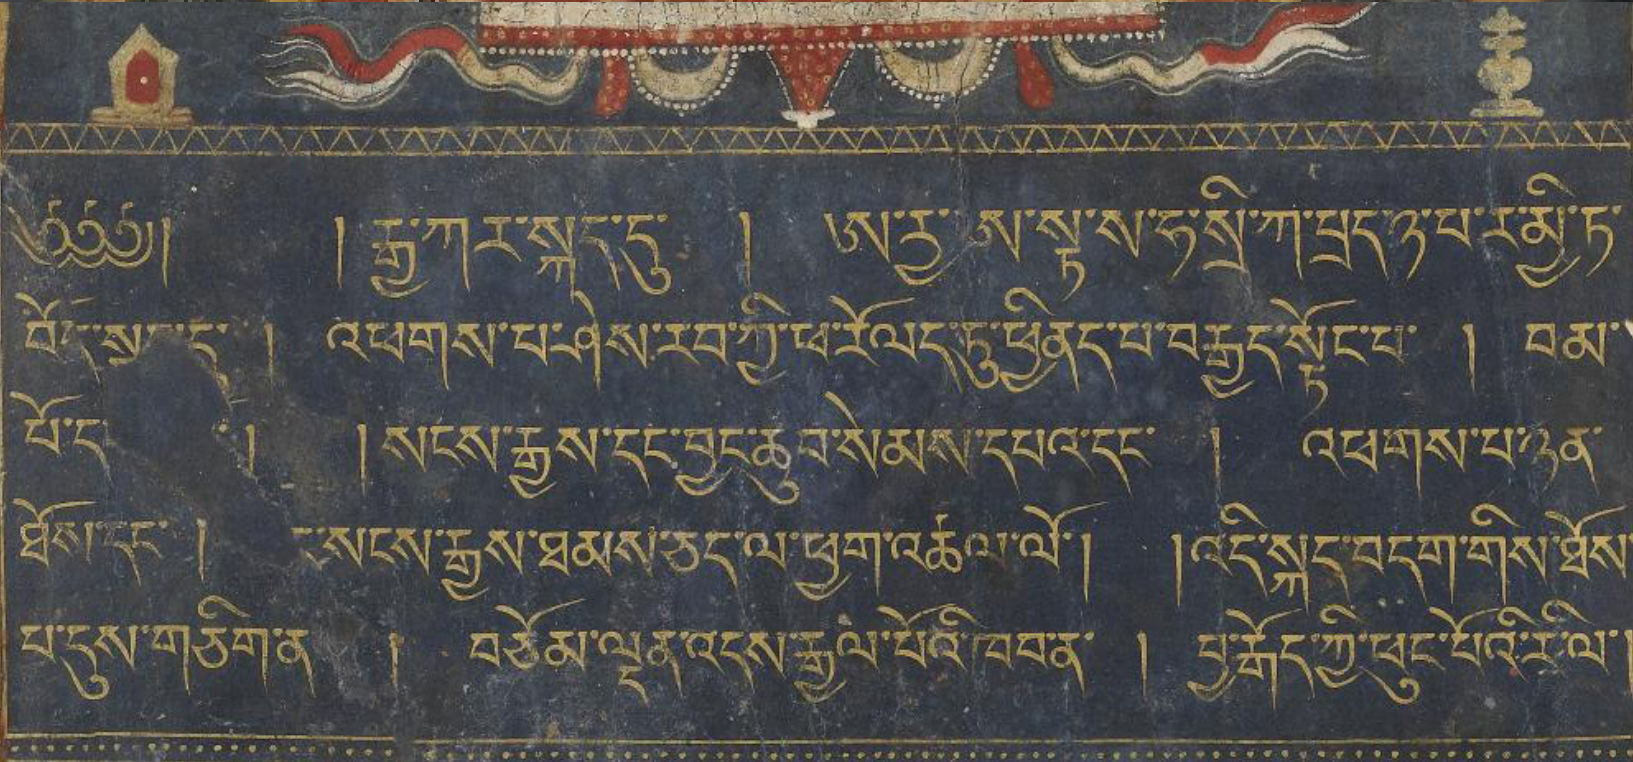 ༄༅༅། །རྒྱ་ཀར་སྐད་དུ ། ཨ་རྱ་ ས་སྟ་ས་ཧ་སྲི་ཀ་པྲད་ཉ་པ་ར་མྱི་ཏ་
བོད་སྐད་དུ་ ། འ་ཕགས་པ་ཤེས་རབ་ཀྱི་ཕ་རོལད་ཏུ་ཕྱིནད་པ་བརྒྱད་སྟོང་པ་ ། བམ་
པོ་ད ། །སངས་རྒྱས་དང་བྱང་ཆུབ་སེམས་དཔའ་དང་ ། འཕགས་པ་ཉན་
ཐོས་དང་ ། སངས་རྒྱས་ཐམས་ཅད་ལ་ཕྱག་འཚལ་ལོ་། །འདི་སྐད་བདག་གིས་ཐོས་
པ་དུས་གཅིག་ན ། བཅོམ་ལྡན་འདས་རྒྱལ་པོའི་ཁབ་ན་ ། བྱ་རྒོད་ཀྱི་ཕུང་པོའི་རི་ལ་།